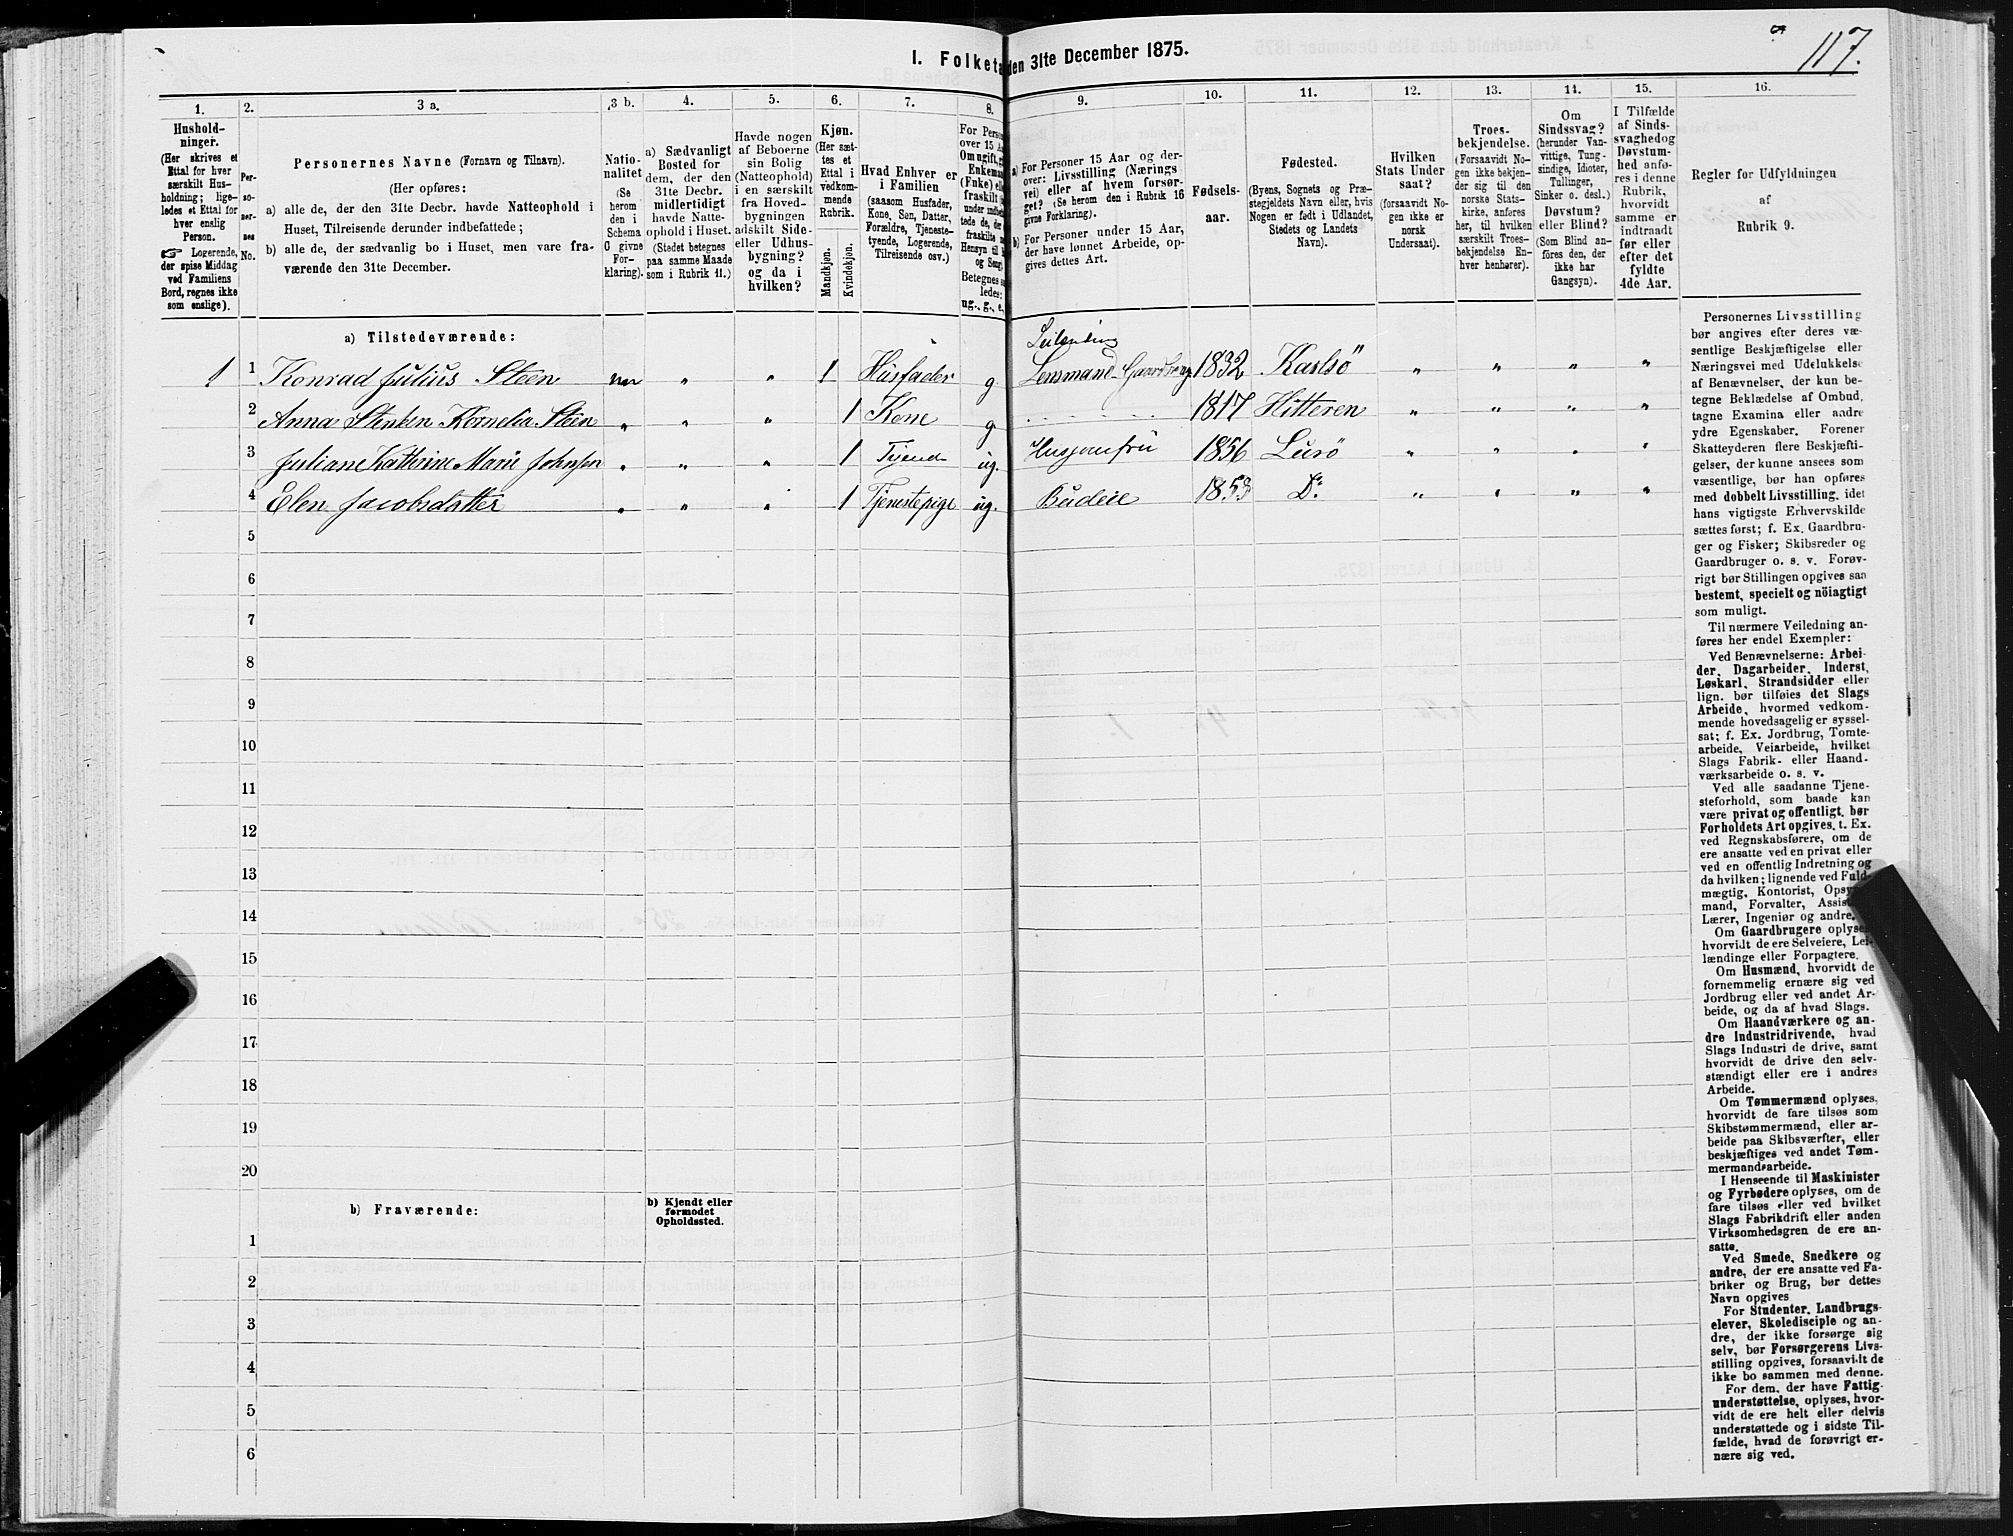 117.
I. Folketa
den 31te December 1875.
1.
2.
3 a.
3 b.
4.
5.
6.
7.
8.
9.
10.
11.
12.
13.
14.
15.
16.
Hushold-
ninger.
(Her skrives et
Ettal for hver
særskilt Hus-
holdning; lige-
ledes et Ettal for
hver enslig
Person.
☞ Logerende,
der spise Middag
ved Familiens
Bord, regnes ikke
som enslige).
Per-
so-
ner-
nes
No.
Personernes Navne (Fornavn og Tilnavn).
(Her opføres:
a) alle de, der den 31te Decbr. havde Natteophold i
Huset, Tilreisende derunder indbefattede;
b) alle de, der sædvanlig bo i Huset, men vare fra-
værende den 31te December.
Natio-
nalitet
(Se
herom
den i
Schema
C givne
For-
klaring).
a) Sædvanligt
Bosted for
dem, der den
31te Decbr.
midlertidigt
havde Natte-
ophold i Huset.
(Stedet betegnes
paa samme Maade
som i Rubrik 11.)
Havde nogen
af Beboerne
sin Bolig
(Natteophold)
i en særskilt
fra Hoved-
bygningen
adskilt Side-
eller Udhus-
bygning?
og da i
hvilken?
Kjøn.
(Her sæt-
tes et
Ettal i
vedkom-
mende
Rubrik.
Mandkjøn.
Kvindekjøn.
Hvad Enhver er
i Familien
(saasom Husfader,
Kone, Søn, Datter,
Forældre, Tjeneste-
tyende, Logerende,
Tilreisende osv.)
For Perso
over 15 A
Om ugift, g
Enkema
(Enke) el
fraskilt
under indbe
tede de, der
fraskilte
Hensyn til
og Seng
Betegnes s
ledes:
ug., g., e.,
a) For Personer 15 Aar og der-
over: Livsstilling (Nærings
vei) eller af hvem forsør-
get? (Se herom den i Rubrik 16
givne Forklaring).
b) For Personer under 15 Aar,
der have lønnet Arbeide, op-
gives dettes Art.
Fødsels-
aar.
Fødested.
(Byens, Sognets og Præ-
stegjeldets Navn eller, hvis
Nogen er født i Udlandet,
Stedets og Landets
Navn).
Hvilken
Stats Under
saat?
(forsaavidt No-
gen ikke er
norsk
Undersaat).
Troes-
bekjendelse.
(Forsaavidt No-
gen ikke bekjen-
der sig til den
norske Stats-
kirke, anføres
her, til hvilken
særskilt Troes-
bekjendelse En-
hver henhører).
Om
Sindssvag?
(herunder Van-
vittige, Tung-
sindige, Idioter,
Tullinger,
Sinker o. desl.)
Døvstum?
eller Blind?
(Som Blind an-
føres den, der
ikke har
Gangsyn).
I Tilfælde
af Sinds-
svaghedog
Døvstum-
hed anfø-
res i denne
Rubrik,
hvorvidt
samme er
indtraadt
før eller
efter det
fyldte
4de Aar.
Regler for Udfyldningen
af
Rubrik 9.
a) Tilstedeværende:
1 1 Konrad Julius Steen nor „ „ 1 Husfader g. Lensmand Gaardbrug 1832 Karlsö „ „ „ „
2 Anna Stenken Kornelia Steen „ „ „ 1 Kone g. 1817 Hitteren „ „ „ „
3 Juliane Kathrine Marie Johnsen „ „ „ 1 Tjend ug. Husjomfru 1856 Lurö „ „ „ „
4 Elen Jacobsdatter „ „ „ 1 Tjenestepige ug. Budeie 1853 Do „ „ „ „
5
6
7
8
9
10
11
12
13
14
15
16
17
18
19
20
b) Fraværende:
b) Kjendt eller
formodet
Opholdssted.
1
2
3
4
5
6
Personernes Livsstilling
bør angives efter deres væ-
sentlige Beskjæftigelse eller
Næringsvei med Udelukkelse
af Benævnelser, der kun be-
tegne Beklædelse af Ombud,
tagne Examina eller andre
ydre Egenskaber. Forener
Skatteyderen flere Beskjæfti-
gelser, der kunne ansees som
væsentlige, bør han opføres
med dobbelt Livsstilling, idet
hans vigtigste Erhvervskilde
sættes først; f. Ex. Gaardbru-
ger og Fisker; Skibsreder og
Gaardbruger o. s. v. Forøv-
rigt bør Stillingen opgives saa
bestemt, specielt og nöiagtigt
som muligt.
Til nærmere Veiledning an-
føres her endel Exempler:
Ved Benævnelserne: Arbei-
der, Dagarbeider, Inderst,
Løskarl, Strandsidder eller
lign. bør tilføies det Slags
Arbeide, hvormed vedkom-
mende hovedsagelig er syssel-
sat; f. Ex. Jordbrug, Tomte-
arbeide, Veiarbeide, hvilket
Slags Fabrik- eller Haand-
værksarbeide o. s. v.
Ved alle saadanne Tjene-
steforhold, som baade kan
være privat og offentligt, bør
Forholdets Art opgives, t. Ex.
ved Regnskabsførere, om de
ere ansatte ved en privat eller
ved en offentlig Indretning og
da hvilken; lignende ved Fuld-
mægtig, Kontorist, Opsyns
mand, Forvalter, Assist
Lærer, Ingeniør og andre.
Om Gaardbrugere oplyse
hvorvidt de ere Selveiere, Lei-
lændinge eller Forpagtere.
Om Husmænd, hvorvidt de
fornemmelig ernære sig ved
Jordbrug eller ved andet Ar-
beide, og da af hvad Slags.
Om Haandværkere og an-
dre Industridrivende, hvad
Slags Industri de drive, samt
hvorvidt de drive den selv-
stændigt eller ere i andres
Arbeide.
Om Tømmermænd oplyses,
hvorvidt de fare tilsøs som
Skibstømmermænd, eller ar-
beide paa Skibsværfter, eller
beskjæftiges ved andet Tøm-
mermandsarbeide.
I Henseende til Maskinister
og Fyrbødere oplyses, om de
fare tilsøs eller ved hvilket
Slags Fabrikdrift eller anden
Virksomhedsgren de ere an-
satte.
Ved Smede, Snedkere og
andre, der ere ansatte ved Fa-
briker og Brug, bør dettes
Navn opgives
For Studenter, Landbrugs-
elever, Skoledisciple og an-
dre, der ikke forsørge sig
selv, bør Forsørgerens Livs-
stilling opgives, forsaavidt de
ikke bo sammen med denne.
For dem, der have Fattig-
understøttelse, oplyses, hvor-
vidt de ere helt eller delvis
understøttede og i sidste Til-
fælde, hvad de forøvrigt er-
nære sig ved.